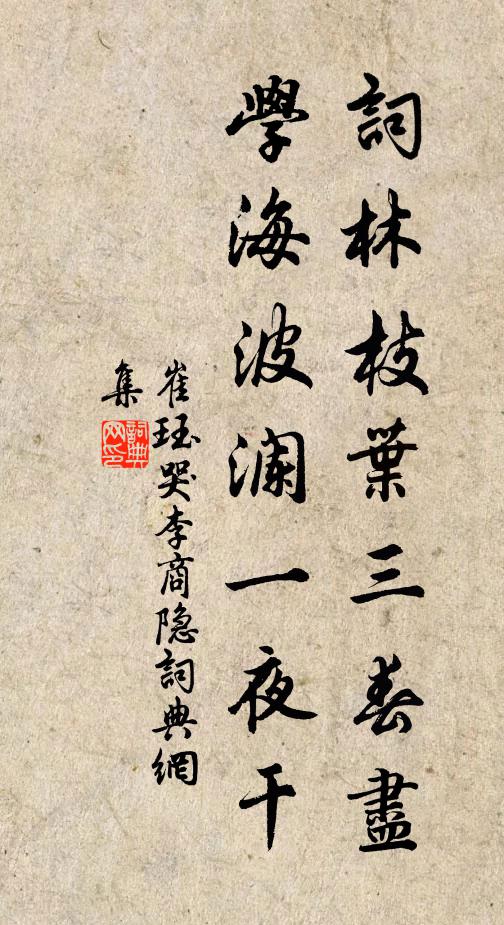 詞林枝葉三春盡
學海波澜一夜干
崔珏哭李商隐詞典網
集
詞典
网印